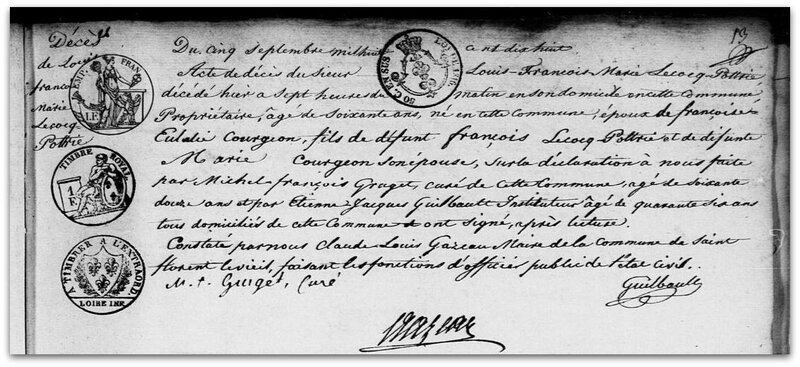 Décès
de Louis
françois
Marie
Lecocq-
Pottrie
13
Du cinq Septembre mil huit cent dix huit
Acte de décès du Sieur Louis-François-Marie Lecocq-Pottrie
décédé hier a Sept heures du matin en son domicile en cette Commune
Propriétaire, agé de Soixante ans, né en cette Commune, époux de françoise
Eulalie Courgeon, fils de défunt françois Lecocq-Pottrie et de défunte
Marie Courgeon Son épouse, Sur la déclaration à nous faite
par Michel-françois Gruget, curé de cette Commune, agé de Soixante
douze ans et par Etienne-Jacques Guilbault Instituteur agé de quarante Six ans
tous domiciliés de cette Commune et ont signé, après lecture.
Constaté par nous Claude-Louis Gazeau Maire de la Commune de Saint
florent le vieil, faisant les fonctions d'officier public de l'état Civil.
M. f. Gruget, Curé
Guilbault
Gazeau
EMP. FRAN.
1F
TIMBRE ROYAL
1
F.
A TIMBRER A L'EXTRAORD
LOIRE INF.
50 C. EN SUS